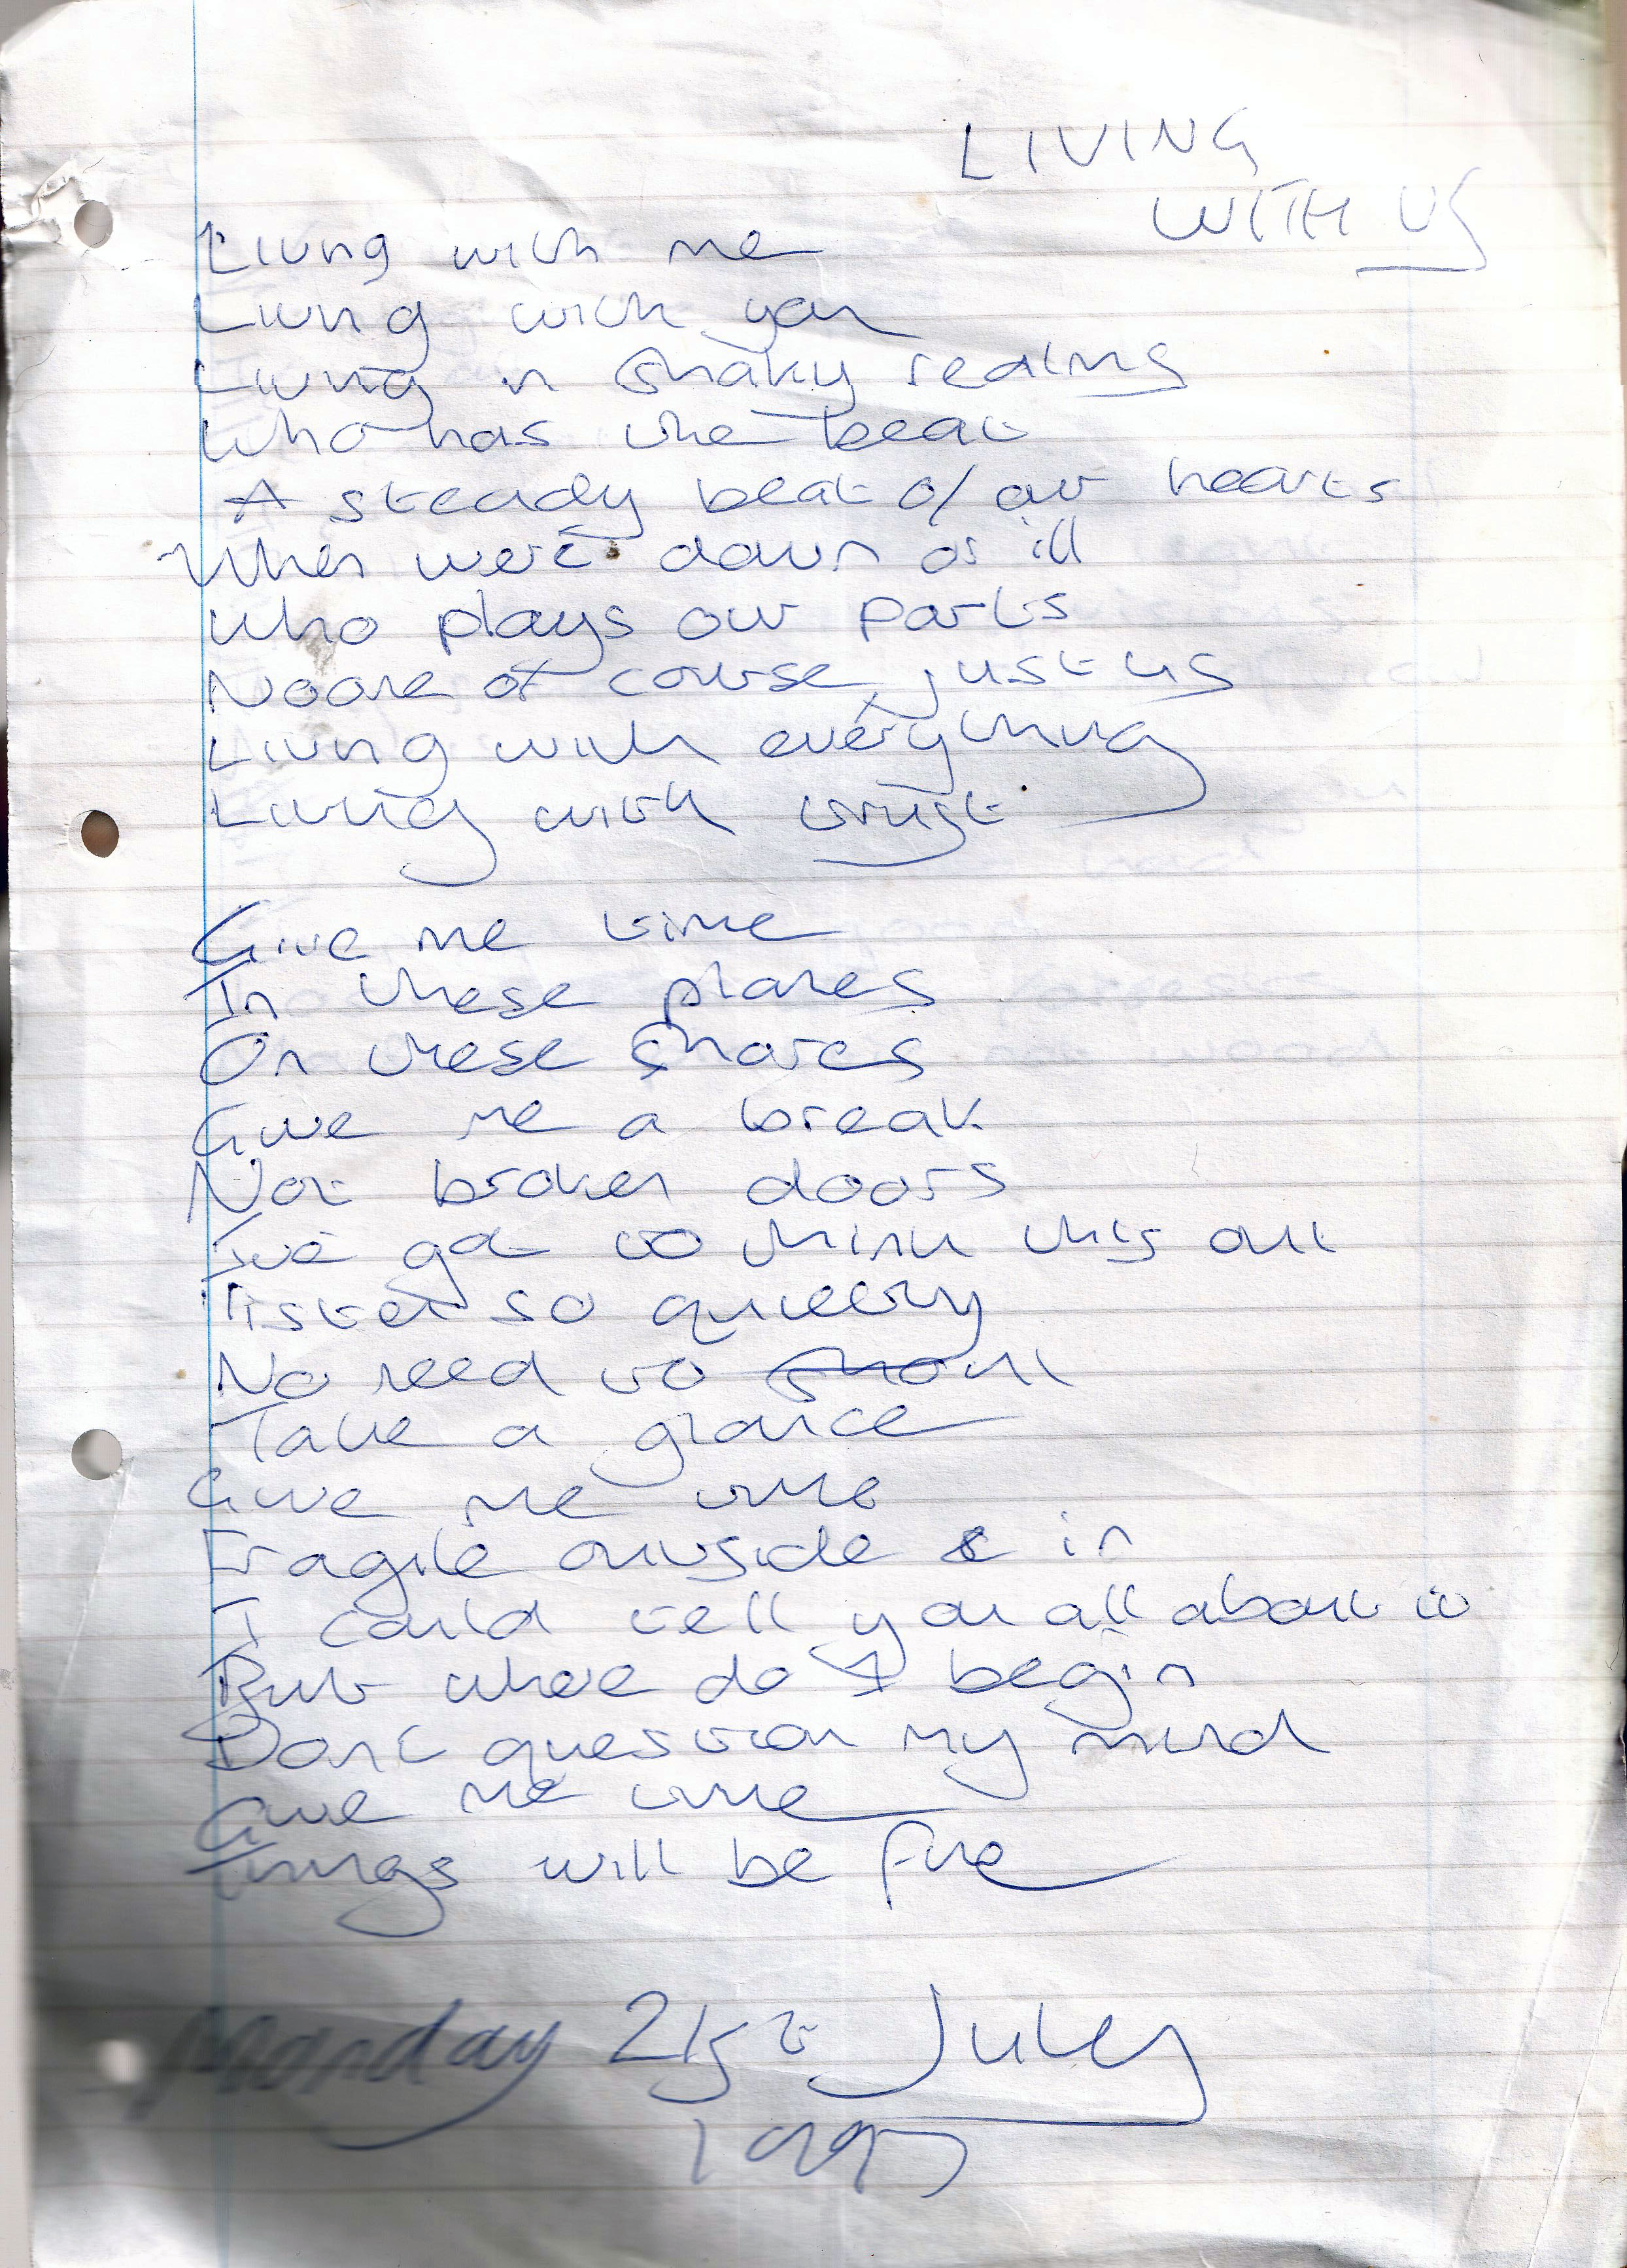 LIVING
WITH US
Living with me
Living with you
Living in shaky realms
Who has the beat
A steady beat of our hearts
When were down or ill
Who plays our parts
Noone of course, just us
Living with everything
Living with trust
Give me time
In these planes
On these shores
Give me a break
Not broken doors
Ive got to think this out
Listen so quietly
No need to shout
Take a glance
Give me time
Fragile outside & in
I could tell you all about it
But where do I begin
Dont question my mind
Give me time
Things will be fine
Monday 21st July